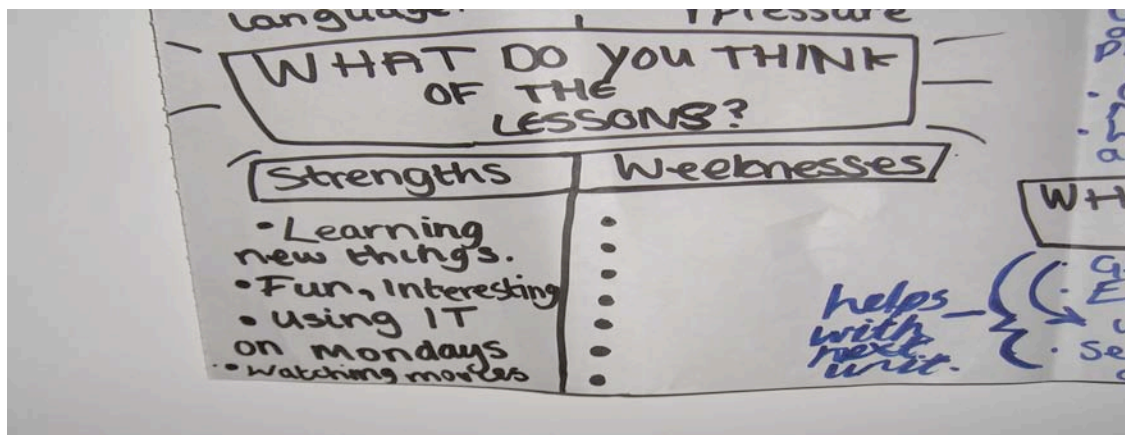 language.
pressure
WHAT DO YOU THINK
OF THE
LESSONS?
Strengths
Weeknesses
• Learning
new things.
• Fun, Interesting
• using IT
on mondays
• watching movies
•
•
•
•
•
•
•
helps
with
next
unit.
WH
G
E
se